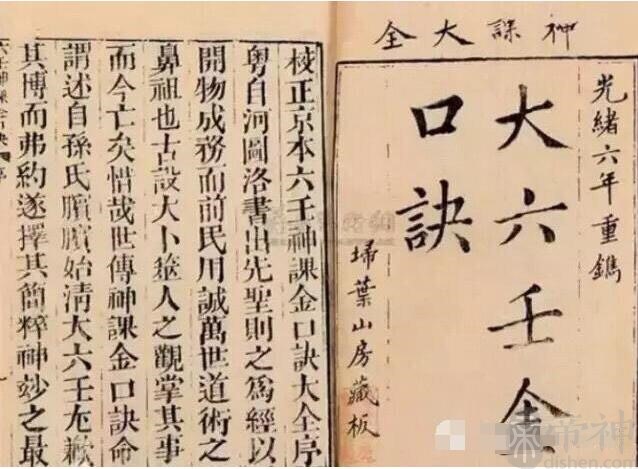 神課大全
光緒六年重鐫
大六壬金
口訣
掃葉山房藏板
校正京本六壬神課金口訣大全序
粵自河圖洛書出先聖則之爲經以
開物成務而前民用誠萬世道術之
鼻祖也古設大卜簭人之觀掌其事
而今亡矣惜哉世傳神課金口訣命
謂述自孫氏臏臏始淸大六壬尨歉
其博而弗約遂擇其簡粹神妙之最
六壬神課金口訣 序
帝神
dishen.com